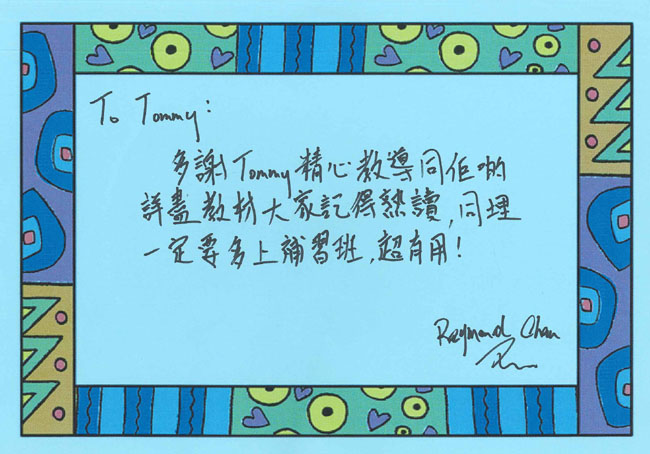 To Tommy:
多謝Tommy精心教導同佢啲
詳盡教材大家記得熟讀,同埋
一定要多上補習班,超有用!
Raymond Chan